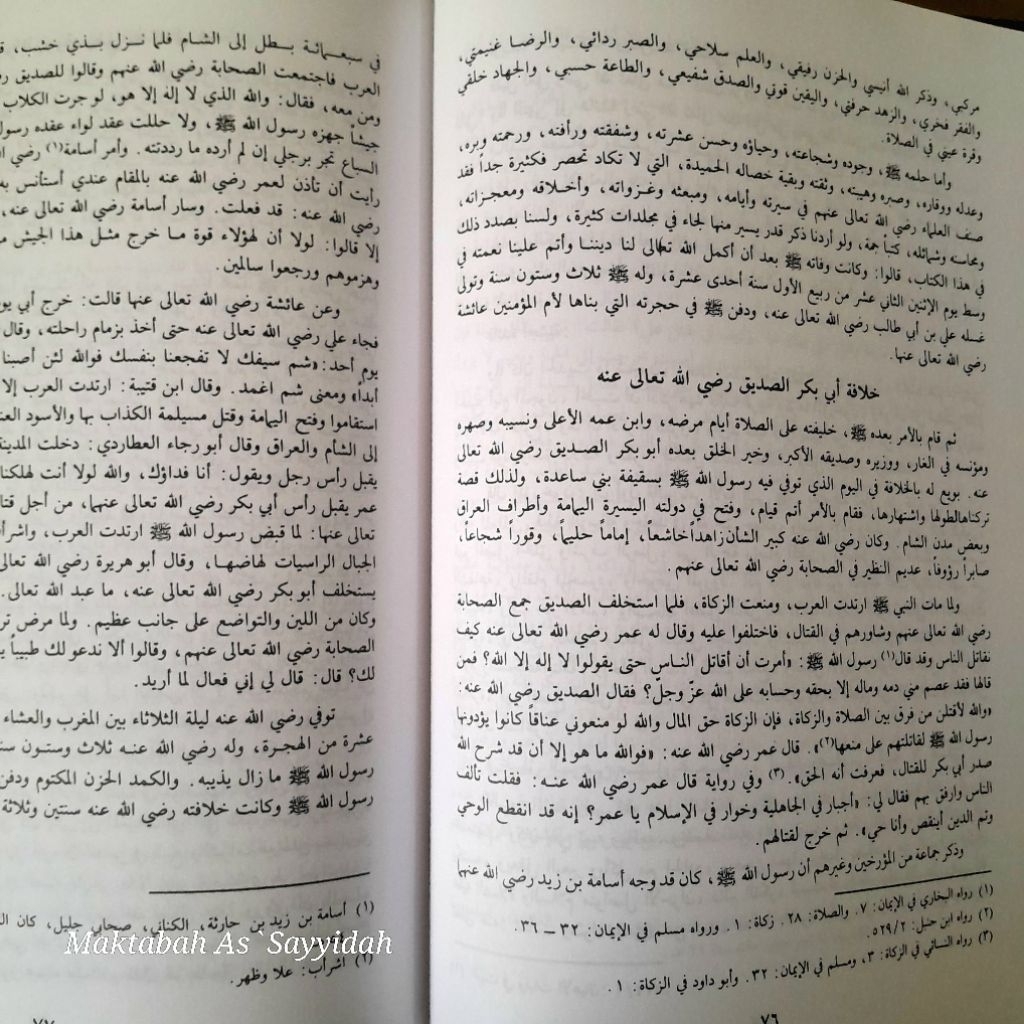 مركبي، وذكر الله أنيسي والحزن رفيقي، والعلم سلاحي، والصبر ردائي، والرضا غنيمتي،
والفقر فخري، والزهد حرفتي، واليقين قوتي والصدق شفيعي، والطاعة حسبي، والجهاد خلقي
وقرة عيني في الصلاة.
وأما حلمه ﷺ، وجوده وشجاعته، وحياؤه وحسن عشرته، وشفقته ورأفته، ورحمته وبره،
وعدله ووقاره، وصبره وهيبته، وثقته وبقية خصاله الحميدة، التي لا تكاد تحصر فكثيرة جداً فقد
صنف العلماء رضي الله تعالى عنهم في سيرته وأيامه، ومبعثه وغزواته، وأخلاقه ومعجزاته،
ومحاسنه وشمائله، كتباً جمة، ولو أردنا ذكر قدر يسير منها لجاء في مجلدات كثيرة، ولسنا بصدد ذلك
في هذا الكتاب، قالوا: وكانت وفاته ﷺ بعد أن أكمل الله تعالى لنا ديننا وأتم علينا نعمته في
وسط يوم الإثنين الثاني عشر من ربيع الأول سنة أحدى عشرة، وله ﷺ ثلاث وستون سنة وتولى
غسله علي بن أبي طالب رضي الله تعالى عنه، ودفن ﷺ في حجرته التي بناها لأم المؤمنين عائشة
رضي الله تعالى عنها.
خلافة أبي بكر الصديق رضي الله تعالى عنه
ثم قام بالأمر بعده ﷺ، خليفته على الصلاة أيام مرضه، وابن عمه الأعلى ونسيبه وصهره
ومؤنسه في الغار، ووزيره وصديقه الأكبر، وخير الخلق بعده أبو بكر الصديق رضي الله تعالى
عنه. بويع له بالخلافة في اليوم الذي توفي فيه رسول الله ﷺ بسقيفة بني ساعدة، ولذلك قصة
تركناهالطولها واشتهارها، فقام بالأمر أتم قيام، وفتح في دولته اليسيرة اليمامة وأطراف العراق
وبعض مدن الشام. وكان رضي الله عنه كبير الشأن زاهداً خاشعاً، إماماً حليماً، وقوراً شجاعاً،
صابراً رؤوفاً، عديم النظير في الصحابة رضي الله تعالى عنهم.
ولما مات النبي ﷺ ارتدت العرب، ومنعت الزكاة، فلما استخلف الصديق جمع الصحابة
رضي الله تعالى عنهم وشاورهم في القتال، فاختلفوا عليه وقال له عمر رضي الله تعالى عنه كيف
نقاتل الناس وقد قال(١) رسول الله ﷺ: «أمرت أن أقاتل الناس حتى يقولوا لا إله إلا الله؟ فمن
قالها فقد عصم مني دمه وماله إلا بحقه وحسابه على الله عزّ وجلّ؟ فقال الصديق رضي الله عنه:
«والله لأقتلن من فرق بين الصلاة والزكاة، فإن الزكاة حق المال والله لو منعوني عناقاً كانوا يؤدونها
رسول الله ﷺ لقاتلتهم على منعها(٢)». قال عمر رضي الله عنه: «فوالله ما هو إلا أن قد شرح الله
صدر أبي بكر للقتال، فعرفت أنه الحق».(٣) وفي رواية قال عمر رضي الله عنه: فقلت تألف
الناس وارفق بهم فقال لي: «أجبار في الجاهلية وخوار في الإسلام يا عمر؟ إنه قد انقطع الوحي
وتم الدين أينقص وأنا حي». ثم خرج لقتالهم.
وذكر جماعة من المؤرخين وغيرهم أن رسول الله ﷺ، كان قد وجه أسامة بن زيد رضي الله عنهما
(١) رواه البخاري في الإيمان: ٧. والصلاة: ٢٨. زكاة: ١. ورواه مسلم في الإيمان: ٣٢ ــ ٣٦.
(٢) رواه ابن حنبل: ٢/٥٢٩.
(٣) رواه النسائي في الزكاة: ٣، ومسلم في الإيمان: ٣٢. وأبو داود في الزكاة: ١.
٧٦
في سبعمائة بسطل إلى الشام فلما نزل بذي خشب،
العرب فاجتمعت الصحابة رضي الله عنهم وقالوا للصديق
ومن معه، فقال: والله الذي لا إله إلا هو، لو جرت الكلاب
جيشاً جهزه رسول الله ﷺ، ولا حللت عقد لواء عقده رسول
السباع تجر برجلي إن لم أرده ما رددته. وأمر أسامة(١) رضي
رأيت أن تأذن لعمر رضي الله عنه بالمقام عندي أستأنس به
رضي الله عنه: قد فعلت. وسار أسامة رضي الله تعالى عنه،
إلا قالوا: لولا أن لهؤلاء قوة ما خرج مثل هذا الجيش
وهزموهم ورجعوا سالمين.
وعن عائشة رضي الله تعالى عنها قالت: خرج أبي
فجاء علي رضي الله تعالى عنه حتى أخذ بزمام راحلته، وقال
يوم أحد: «شم سيفك لا تفجعنا بنفسك فوالله لئن أصبنا
أبداً» ومعنى شم اغمد. وقال ابن قتيبة: ارتدت العرب إلا
استقاموا وفتح اليمامة وقتل مسيلمة الكذاب بها والأسود
إلى الشأم والعراق وقال أبو رجاء العطاردي: دخلت المدينة
يقبل رأس رجل ويقول: أنا فداؤك، والله لولا أنت لهلكنا
عمر يقبل رأس أبي بكر رضي الله تعالى عنهما، من أجل
تعالى عنها: لما قبض رسول الله ﷺ ارتدت العرب،
الجبال الراسيات لهاضها، وقال أبو هريرة رضي الله تعالى
يستخلف أبو بكر رضي الله تعالى عنه، ما عبد الله تعالى.
وكان من اللين والتواضع على جانب عظيم. ولما مرض
الصحابة رضي الله تعالى عنهم، وقالوا ألا ندعو لك طبيباً
لك؟ قال: قال لي إني فعال لما أريد.
توفي رضي الله عنه ليلة الثلاثاء بين المغرب والعشاء
عشرة من الهجرة، وله رضي الله عنه ثلاث وستون
رسول الله ﷺ ما زال يذيبه. والكمد الحزن المكتوم ودفن
رسول الله ﷺ وكانت خلافته رضي الله عنه سنتين وثلاثة
(١) أسامة بن زيد بن حارثة، الكناني، صحابي جليل، كان
Maktabah As`Sayyidah
اشرأب: علا وظهر.
٧٧